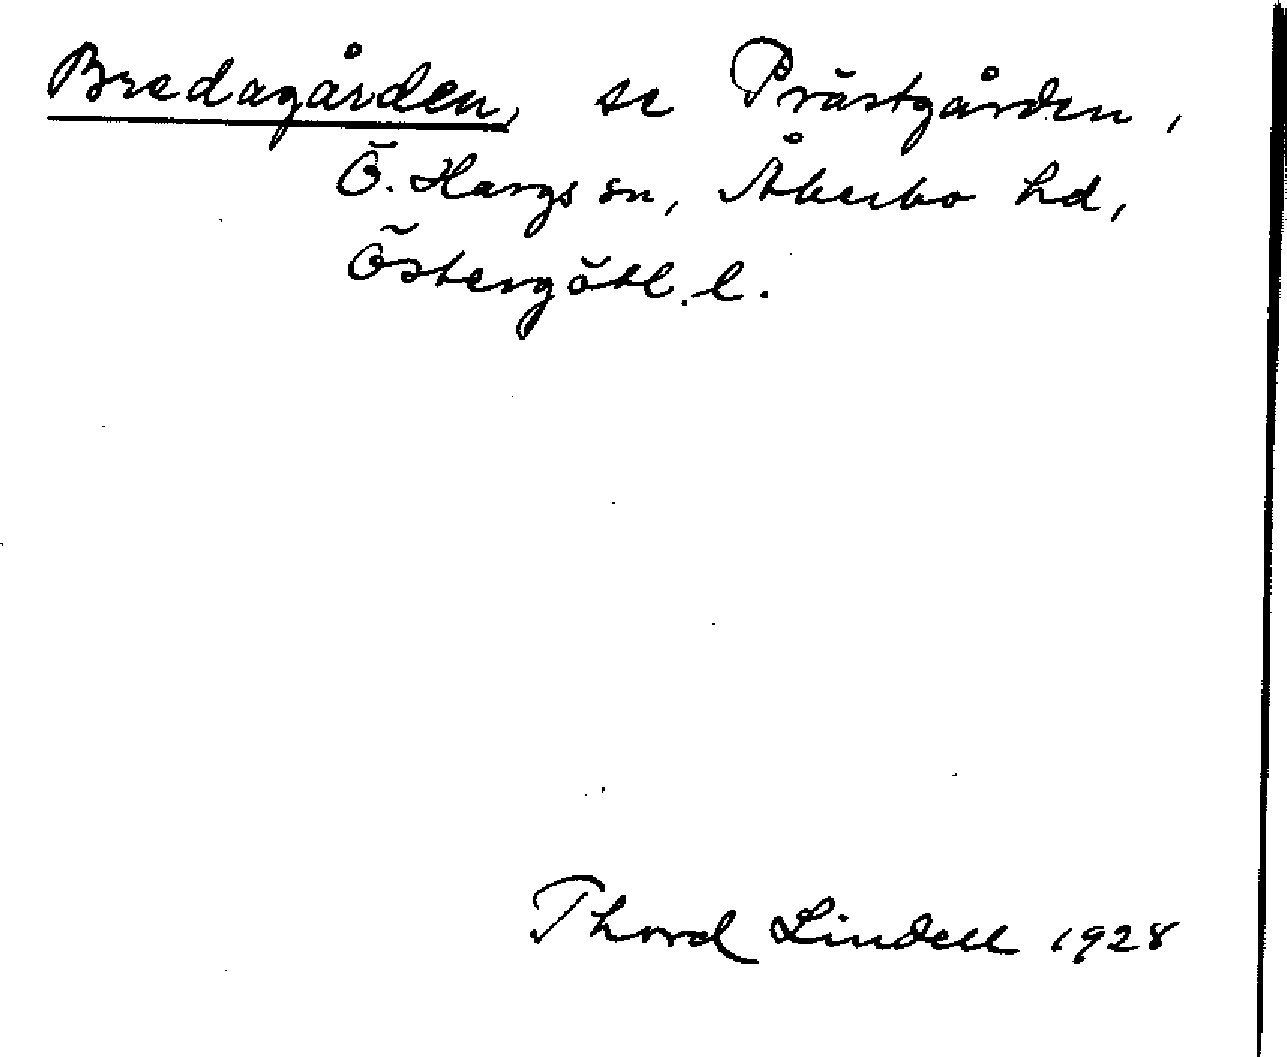 Bredagården, se Prästgården,
Ö. Hargs sn, Åkerbo hd,
Östergötl. l.
Thord Lindell 1928